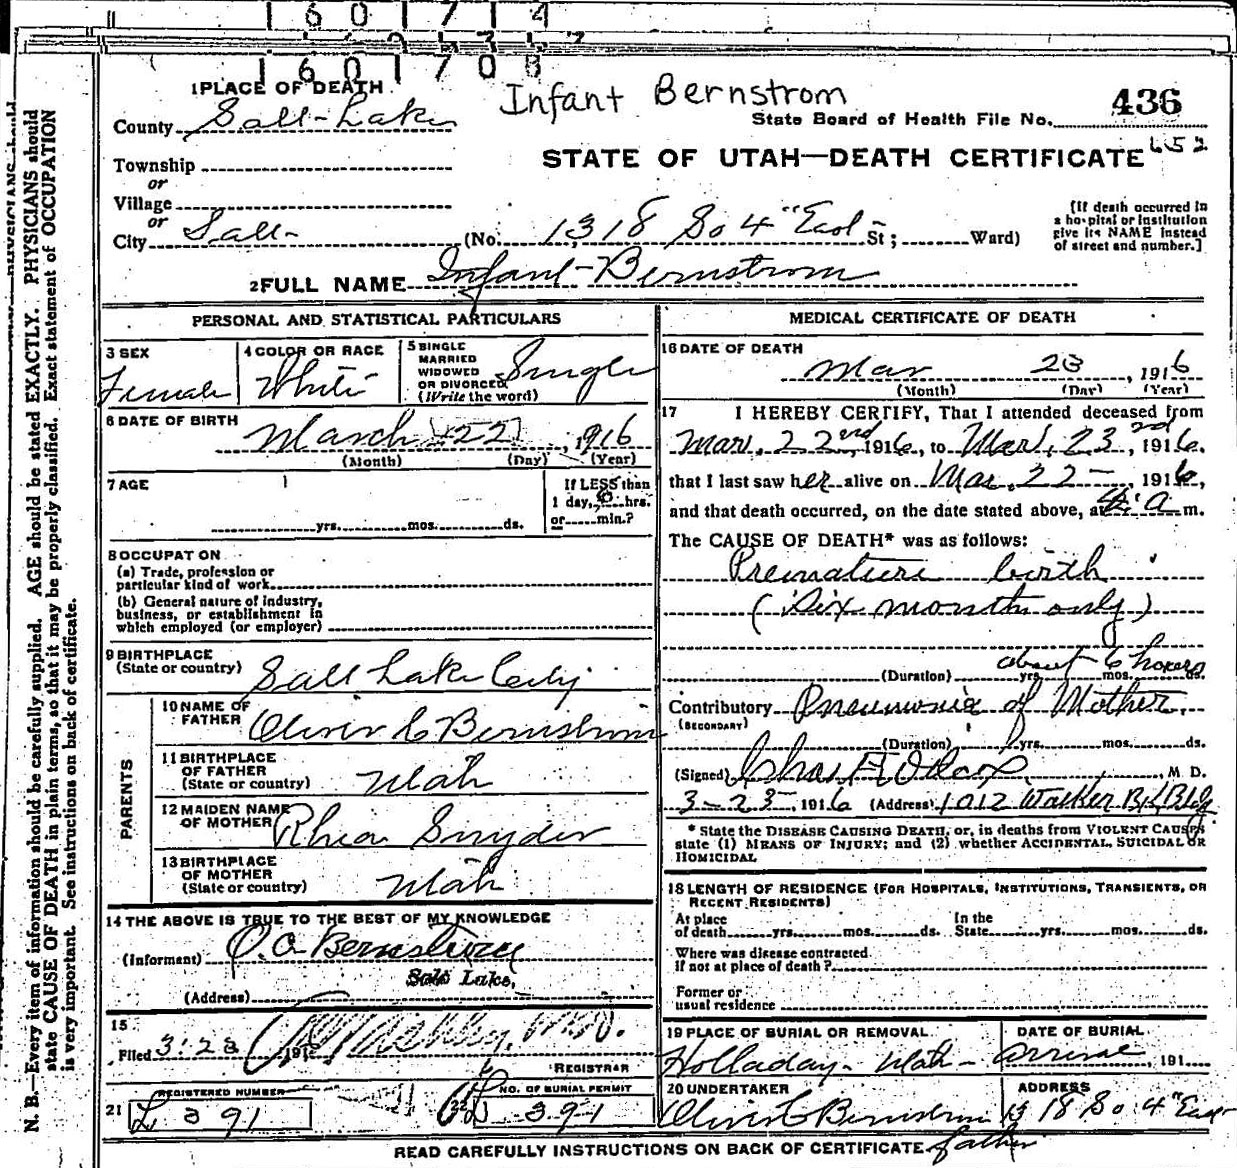 1 6 0 1 7 1 4
1 6 0 1 7 0 8
1 PLACE OF DEATH
Infant Bernstrom
436
County Salt Lake
State Board of Health File No.
Township
STATE OF UTAH—DEATH CERTIFICATE 652
or
Village
or
City Salt (No. 1318 So 4" East St; Ward)
[If death occurred in
a hospital or institution
give its NAME instead
of street and number.]
2 FULL NAME Infant Bernstrom
PERSONAL AND STATISTICAL PARTICULARS
3 SEX
Female
4 COLOR OR RACE
White
5 SINGLE
MARRIED
WIDOWED
OR DIVORCED
(Write the word)
Single
6 DATE OF BIRTH
March 22, 1916
(Month) (Day) (Year)
7 AGE
yrs. mos. ds.
If LESS than
1 day, 6 hrs.
or min.?
8 OCCUPATION
(a) Trade, profession or
particular kind of work
(b) General nature of industry,
business, or establishment in
which employed (or employer)
9 BIRTHPLACE
(State or country) Salt Lake City
PARENTS
10 NAME OF
FATHER Oliver C Bernstrom
11 BIRTHPLACE
OF FATHER
(State or country) Utah
12 MAIDEN NAME
OF MOTHER Rhea Snyder
13 BIRTHPLACE
OF MOTHER
(State or country) Utah
14 THE ABOVE IS TRUE TO THE BEST OF MY KNOWLEDGE
(Informant) O. C. Bernstrom
Salt Lake,
(Address)
15
Filed 3-23 1916 M.D.
REGISTRAR
REGISTERED NUMBER
NO. OF BURIAL PERMIT
21 L 391 391
MEDICAL CERTIFICATE OF DEATH
16 DATE OF DEATH
Mar 23, 1916
(Month) (Day) (Year)
17 I HEREBY CERTIFY, That I attended deceased from
Mar. 22nd, 1916, to Mar. 23rd, 1916.
that I last saw her alive on Mar. 22, 1916,
and that death occurred, on the date stated above, at a m.
The CAUSE OF DEATH* was as follows:
Premature birth
(Six months only)
about 6 hours
(Duration) yrs. mos. ds.
Contributory Pneumonia of Mother
(SECONDARY)
(Duration) yrs. mos. ds.
(Signed) Chas F Wilcox, M D.
3-23, 1916 (Address) 1012 Walker Bk Bldg
* State the DISEASE CAUSING DEATH, or, in deaths from VIOLENT CAUSES
state (1) MEANS OF INJURY; and (2) whether ACCIDENTAL, SUICIDAL OR
HOMICIDAL
18 LENGTH OF RESIDENCE (FOR HOSPITALS, INSTITUTIONS, TRANSIENTS, OR
RECENT RESIDENTS)
At place
of death yrs. mos. ds.
In the
State yrs. mos. ds.
Where was disease contracted
if not at place of death?
Former or
usual residence
19 PLACE OF BURIAL OR REMOVAL
Holladay - Utah
DATE OF BURIAL
, 191
20 UNDERTAKER
Oliver C Bernstrom
father
ADDRESS
1318 So 4" East
READ CAREFULLY INSTRUCTIONS ON BACK OF CERTIFICATE
N. B.—Every item of information should be carefully supplied. AGE should be stated EXACTLY. PHYSICIANS should
state CAUSE OF DEATH in plain terms, so that it may be properly classified. Exact statement of OCCUPATION
is very important. See instructions on back of certificate.